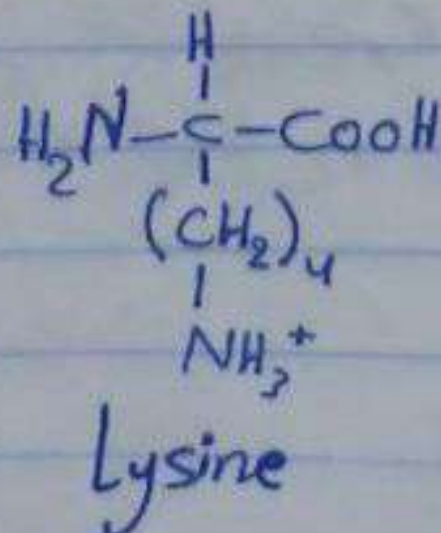 H
H₂N-C-COOH
(CH₂)₄
NH₃⁺
Lysine